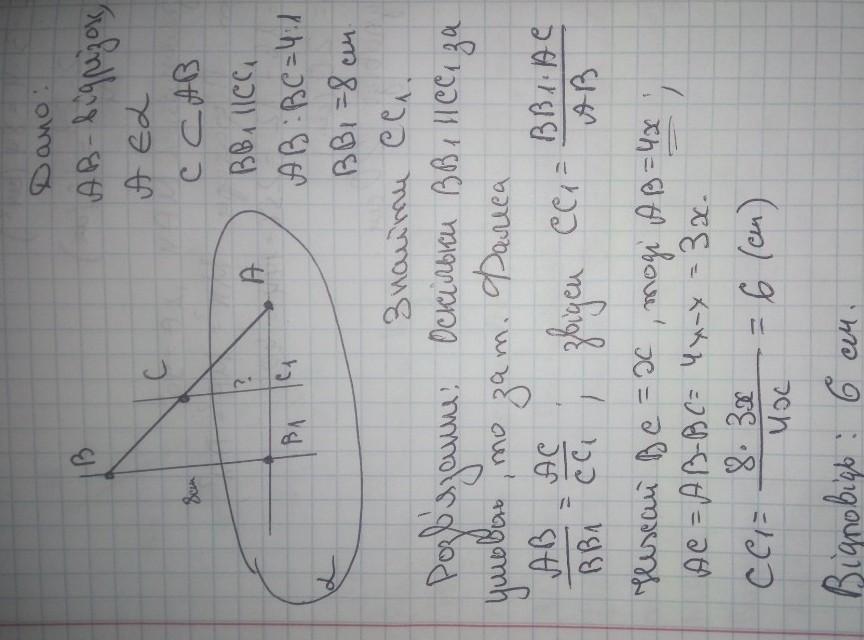 Дано:
AB - відрізок,
A ∈ α
C ⊂ AB
BB₁ || CC₁
AB : BC = 4:1
BB₁ = 8 см
Знайти CC₁.
B
C
A
8см
?
B₁
C₁
α
Розв'язання: Оскільки BB₁ || CC₁ за
умовою, то за т. Фалеса
AB/BB₁ = AC/CC₁ ; звідси CC₁ = BB₁·AC/AB
Нехай BC = x, тоді AB = 4x ;
AC = AB-BC = 4x-x = 3x.
CC₁ = 8·3x/4x = 6 (см)
Відповідь: 6 см.